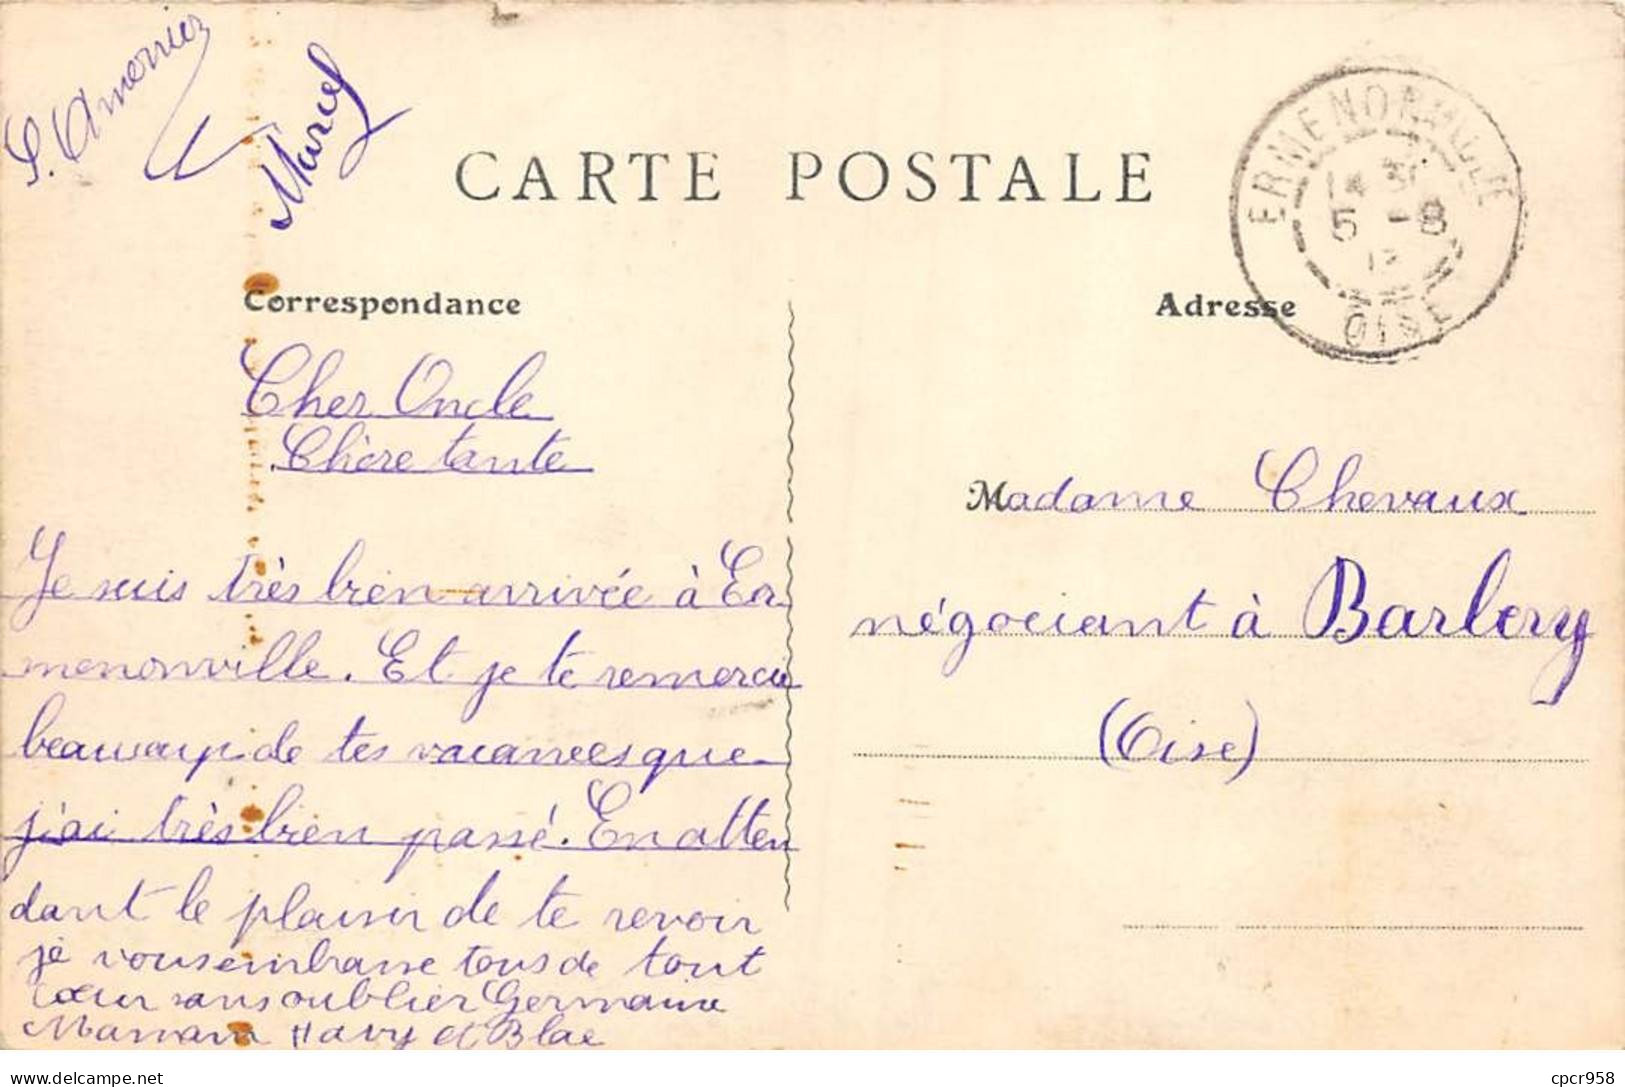 Marcel
CARTE POSTALE
ERMENONVILLE
5 -8
OISE
Correspondance
Adresse
Cher Oncle
Chère tante
Je suis très bien arrivée à Er
menonville. Et je te remercie
beaucoup de tes vacances que
j'ai très bien passé. En atten
dant le plaisir de te revoir
je vous embrasse tous de tout
cœur sans oublier Germaine
Maman et
Madame Chevaux
négociant à Barbery
(Oise)
delcampe.net
cpcr958